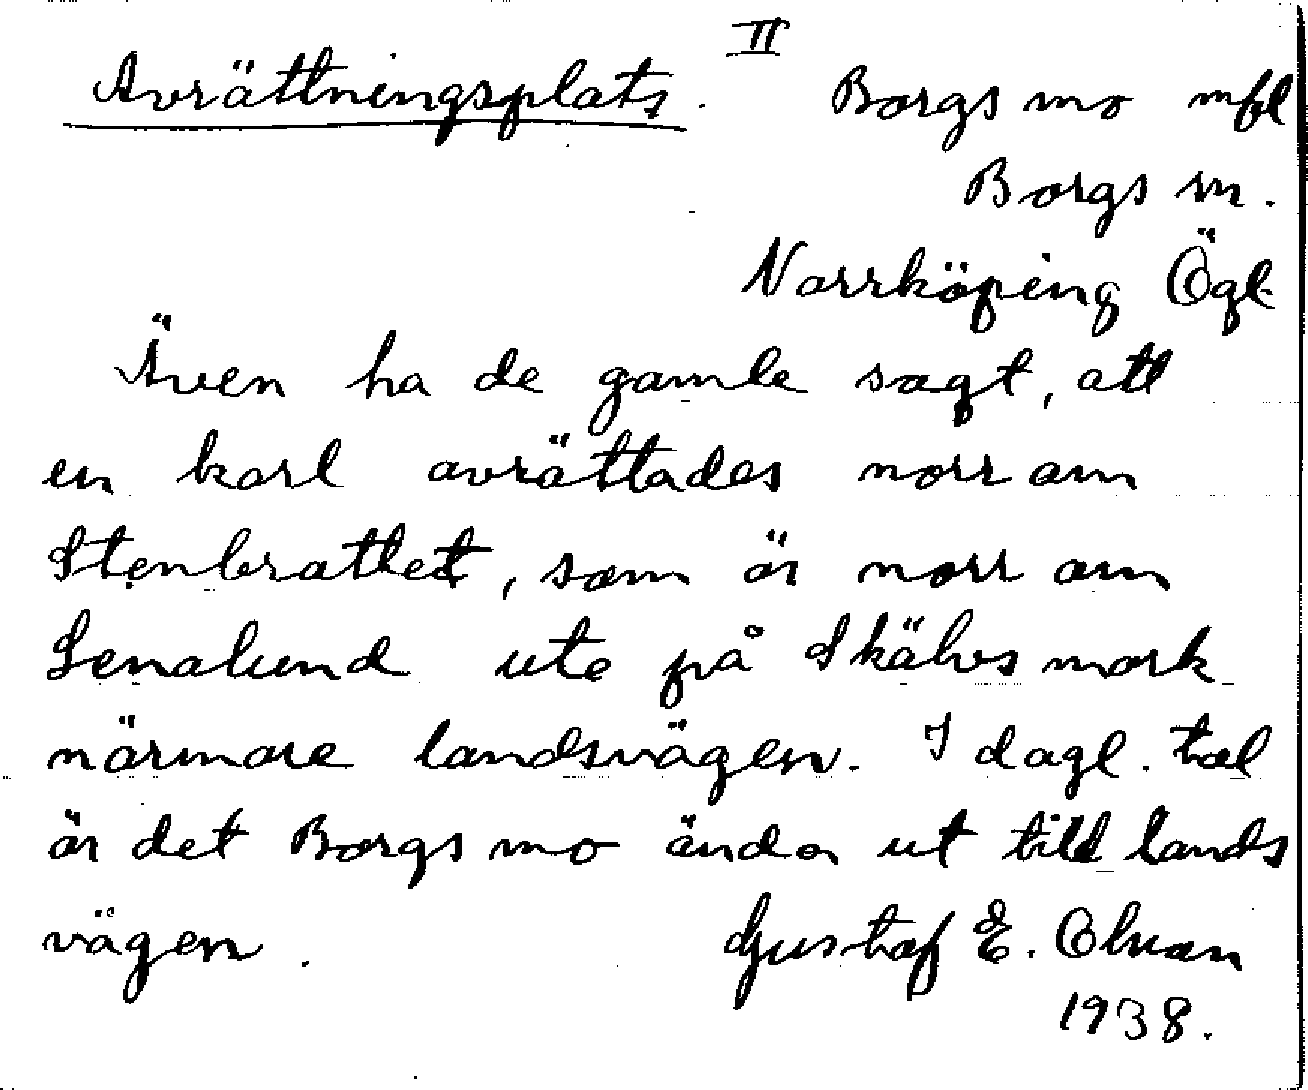 II
Avrättningsplats. Borgs mo mfl
Borgs sn.
Norrköping Ögl.
Även ha de gamle sagt, att
en karl avrättades norr om
Stenbrottet, som är norr om
Lenalund ute på Skälvs mark
närmare landsvägen. I dagl. tal
är det Borgs mo ända ut till lands
vägen. Gustaf E. Olson
1938.